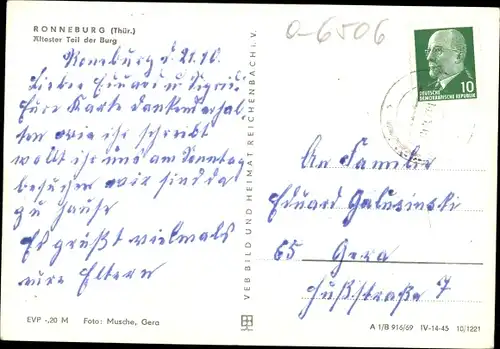 RONNEBURG (Thür.)
Ältester Teil der Burg
0-6506
Ronneburg d 21.10.
Liebe Eduard u Sigrid
Eure Karte dankend erhal
ten wie ihr schreibt
wollt ihr uns am Sonntag
besuchen wir sind da
zu hause
Es grüßt vielmals
eure Eltern
EVP -,20 M Foto: Musche, Gera
VEB BILD UND HEIMAT REICHENBACH i. V.
10
DEUTSCHE
DEMOKRATISCHE REPUBLIK
An Familie
Eduard Galusinski
65 Gera
7
A 1/B 916/69 IV-14-45 10/1221